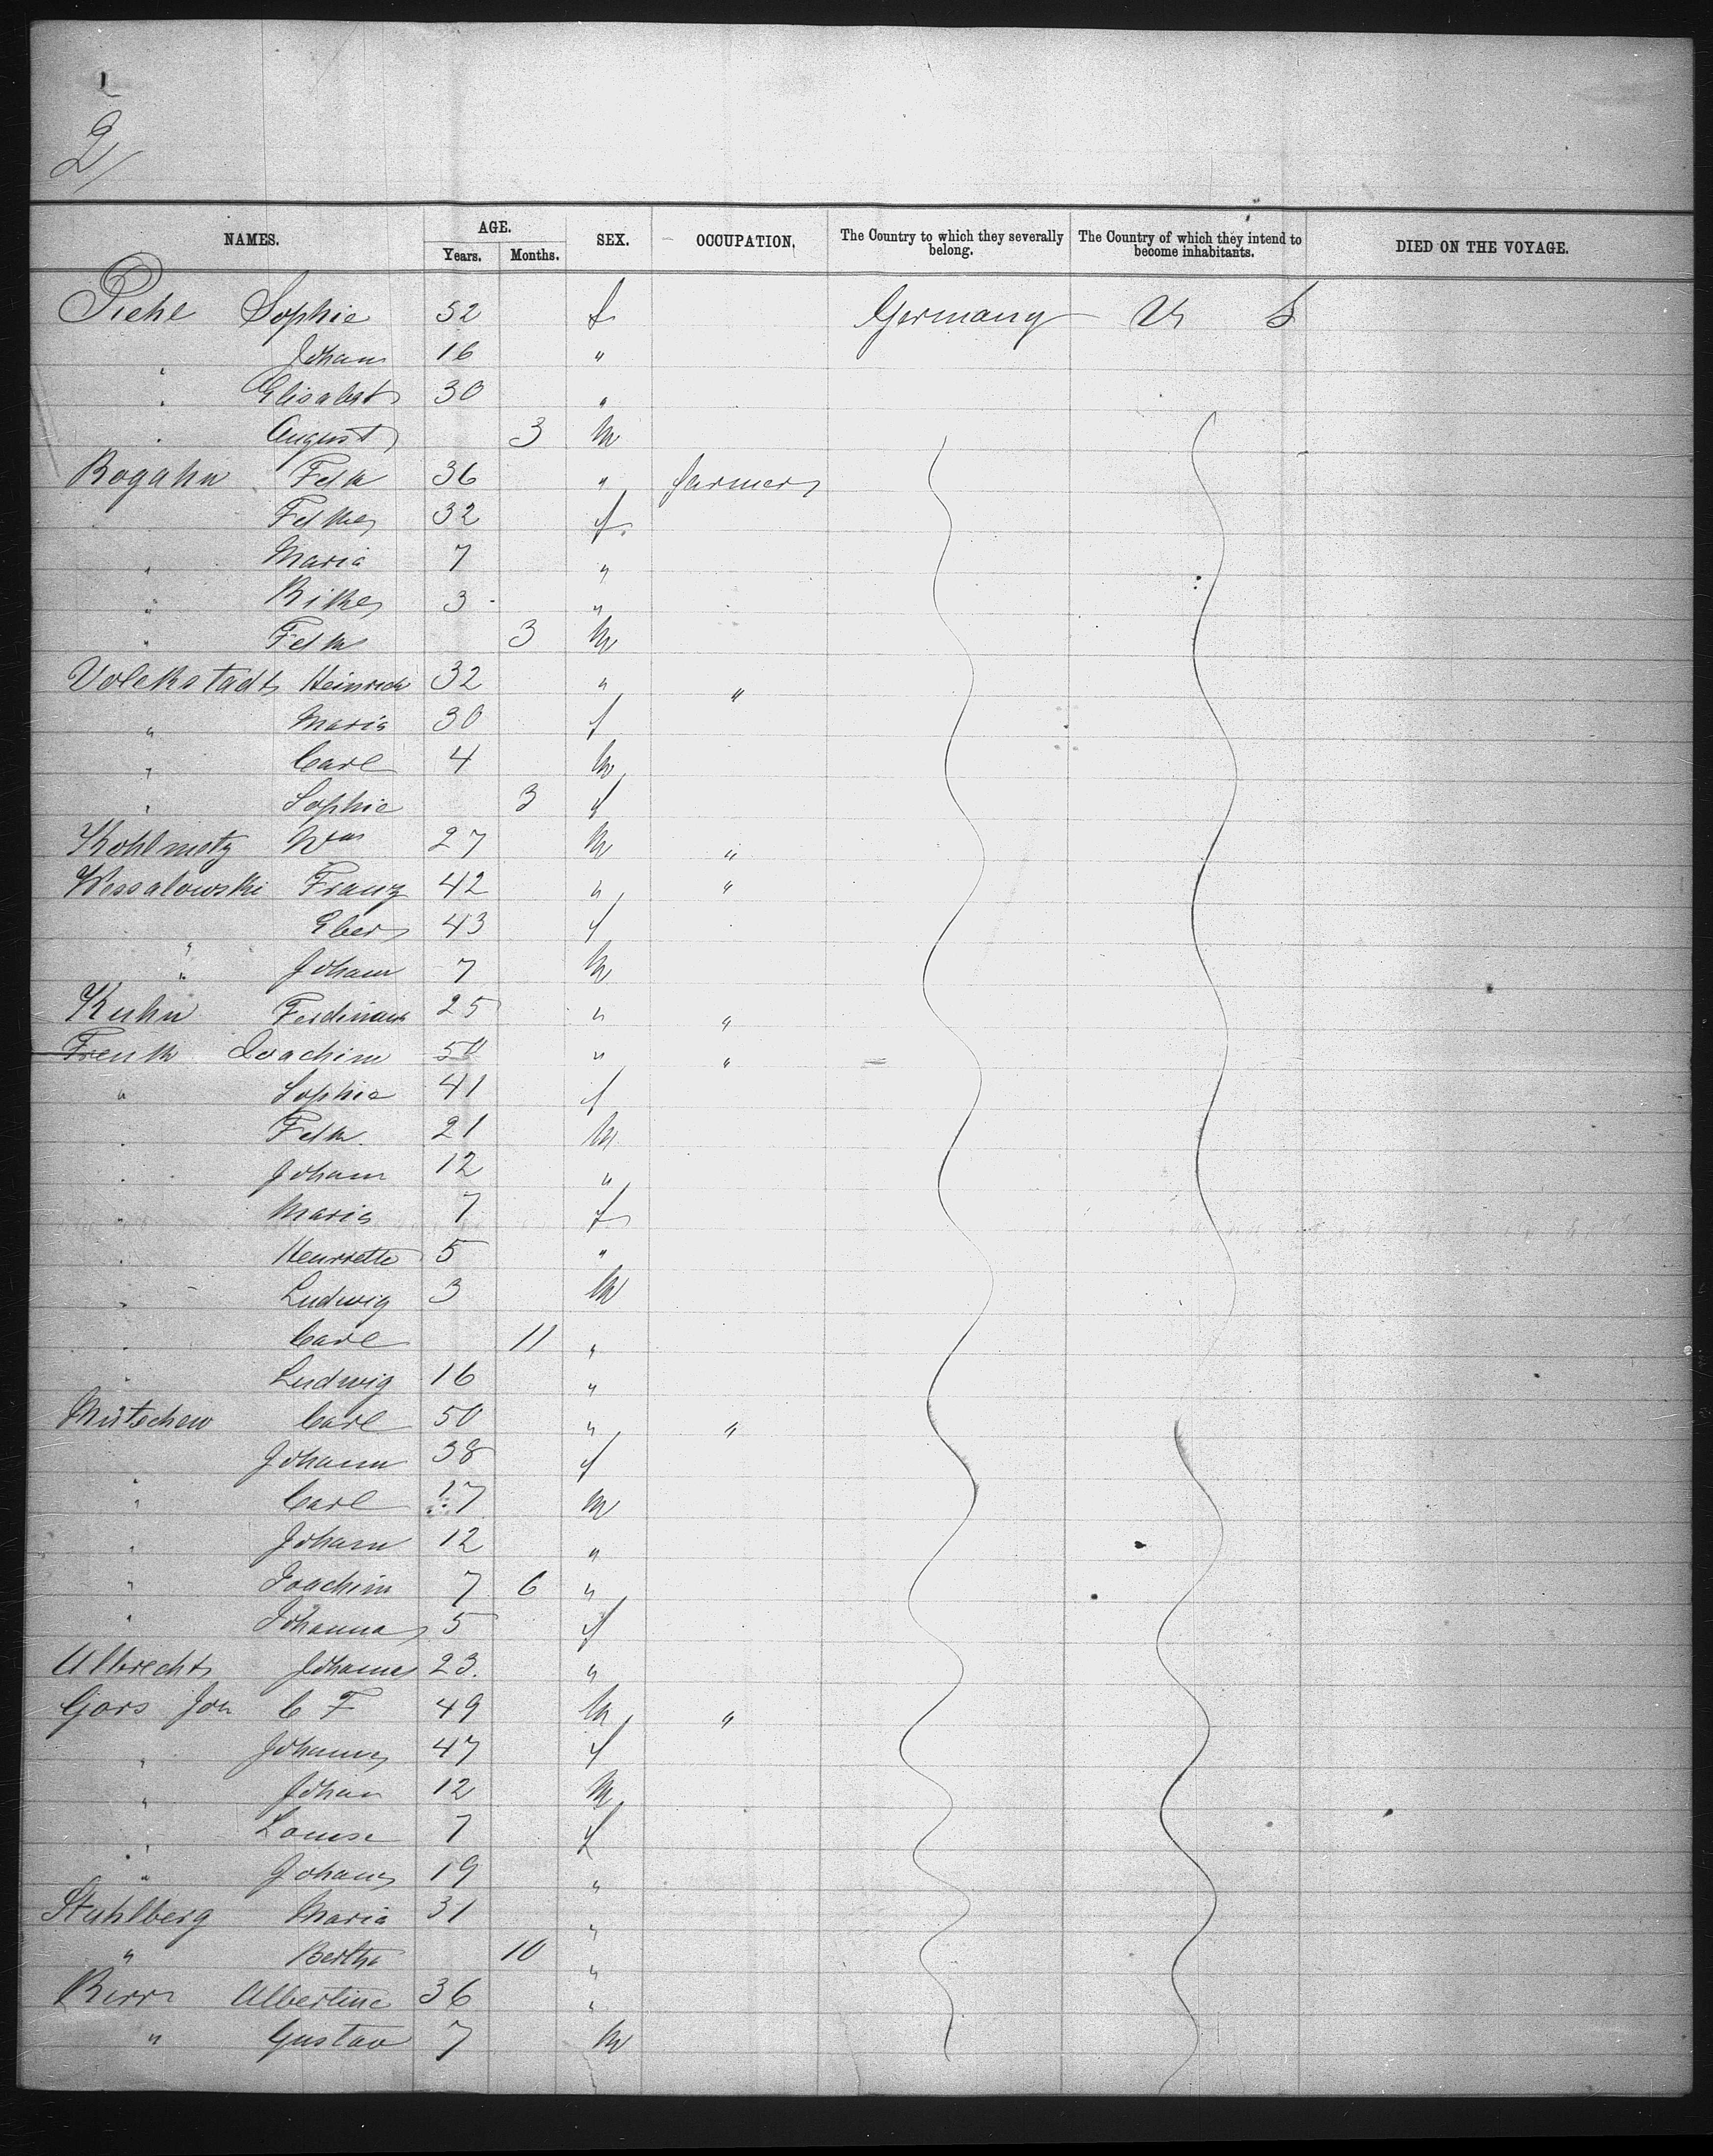 2/
NAMES. AGE. Years. Months. SEX. OCCUPATION. The Country to which they severally belong. The Country of which they intend to become inhabitants. DIED ON THE VOYAGE.
Piehl Sophie 52 f Germany U S
" Johan 16 "
" Elisabet 30 "
" August 3 m
Rogahn Fdk 36 " farmer
Fdke 32 f
" Maria 7 "
" Rike 3 "
" Fdk 3 m
Volckstadt Heinrich 32 " "
" Maria 30 f
" Carl 4 m
" Sophie 3 f
Kohlmetz 27 m "
Wessalowski Franz 42 " "
" 43 f
" Johann 7 m
Kuhn Ferdinand 25 " "
Frenk Joachim 50 " "
" Sophie 41 f
" Fdk 21 m
" Johann 12 "
" Maria 7 f
" Henriette 5 "
" Ludwig 3 m
" Carl 11 "
" Ludwig 16 "
Mütschow Carl 50 " "
Johann 38 f
" Carl 17 m
" Johann 12 "
" Joachim 7 6 "
" Johanna 5 f
Albrecht Johanna 23 "
Gors Joh C F 49 m "
" Johanna 47 f
" Johan 12 m
" Louise 7 f
" Johana 19 "
Stuhlberg Maria 31 "
" Bertha 10 "
Birr Albertine 36 "
" Gustav 7 m